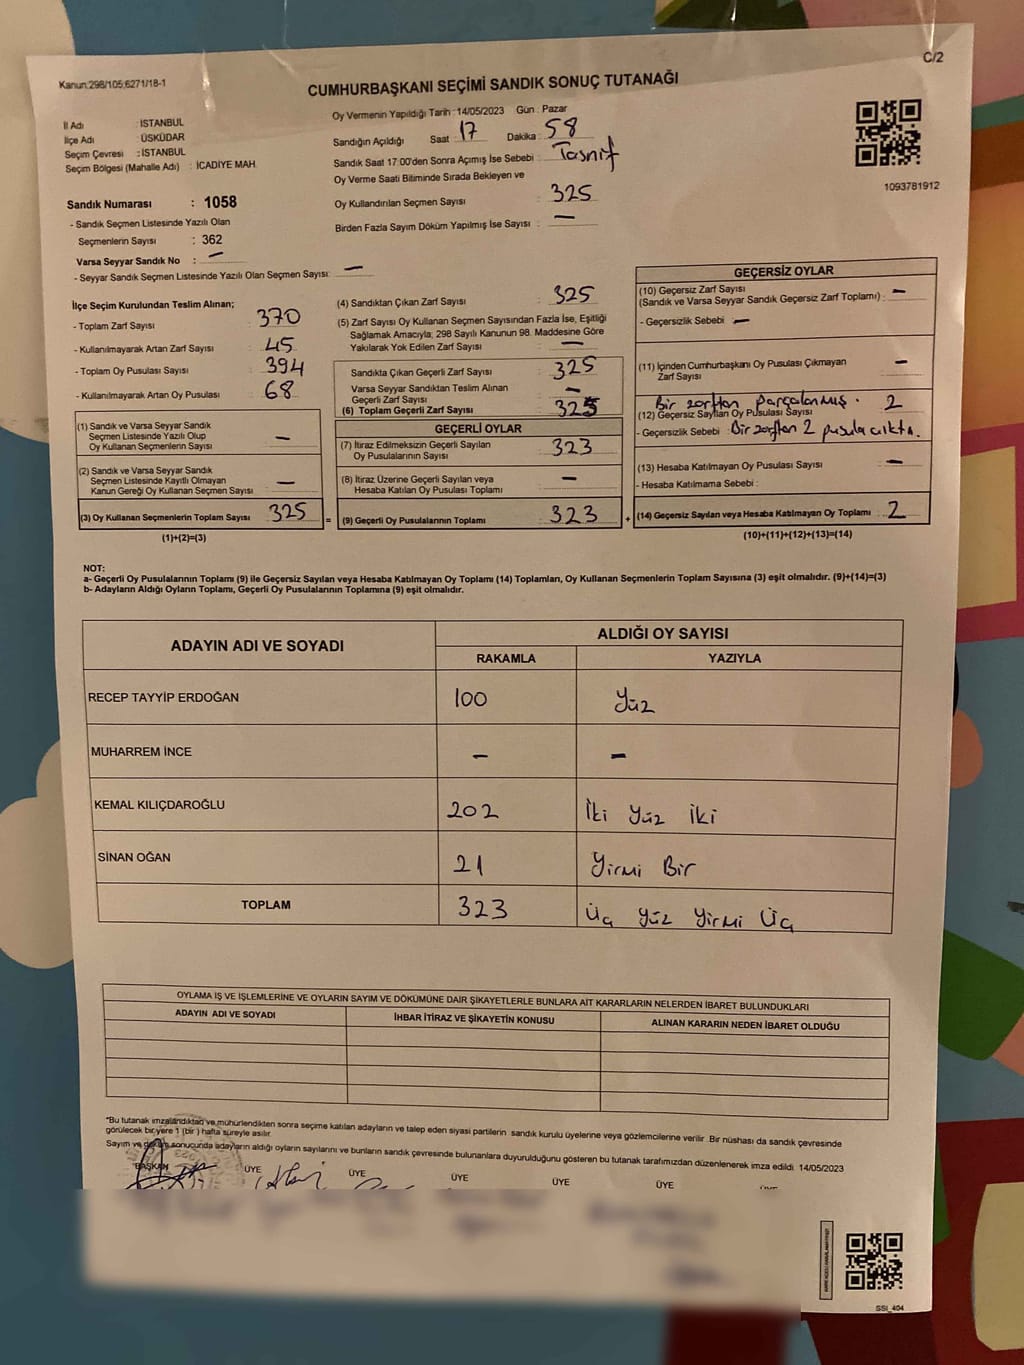 C/2
Kanun:298/105;6271/18-1
CUMHURBAŞKANI SEÇİMİ SANDIK SONUÇ TUTANAĞI
İl Adı : İSTANBUL
İlçe Adı : ÜSKÜDAR
Seçim Çevresi : İSTANBUL
Seçim Bölgesi (Mahalle Adı) : İCADİYE MAH.
Sandık Numarası : 1058
- Sandık Seçmen Listesinde Yazılı Olan
Seçmenlerin Sayısı : 362
Varsa Seyyar Sandık No : —
- Seyyar Sandık Seçmen Listesinde Yazılı Olan Seçmen Sayısı: —
Oy Vermenin Yapıldığı Tarih : 14/05/2023 Gün : Pazar
Sandığın Açıldığı Saat : 17 Dakika : 58
Sandık Saat 17:00'den Sonra Açımış İse Sebebi : Tasnif
Oy Verme Saati Bitiminde Sırada Bekleyen ve
Oy Kullandırılan Seçmen Sayısı : 325
Birden Fazla Sayım Döküm Yapılmış İse Sayısı : —
1093781912
İlçe Seçim Kurulundan Teslim Alınan;
- Toplam Zarf Sayısı : 370
- Kullanılmayarak Artan Zarf Sayısı : 45
- Toplam Oy Pusulası Sayısı : 394
- Kullanılmayarak Artan Oy Pusulası : 68
(1) Sandık ve Varsa Seyyar Sandık
Seçmen Listesinde Yazılı Olup
Oy Kullanan Seçmenlerin Sayısı : —
(2) Sandık ve Varsa Seyyar Sandık
Seçmen Listesinde Kayıtlı Olmayan
Kanun Gereği Oy Kullanan Seçmen Sayısı : —
(3) Oy Kullanan Seçmenlerin Toplam Sayısı : 325
(1)+(2)=(3)
(4) Sandıktan Çıkan Zarf Sayısı : 325
(5) Zarf Sayısı Oy Kullanan Seçmen Sayısından Fazla İse, Eşitliği
Sağlamak Amacıyla; 298 Sayılı Kanunun 98. Maddesine Göre
Yakılarak Yok Edilen Zarf Sayısı : —
Sandıkta Çıkan Geçerli Zarf Sayısı : 325
Varsa Seyyar Sandıktan Teslim Alınan
Geçerli Zarf Sayısı : —
(6) Toplam Geçerli Zarf Sayısı : 325
GEÇERLİ OYLAR
(7) İtiraz Edilmeksizin Geçerli Sayılan
Oy Pusulalarının Sayısı : 323
(8) İtiraz Üzerine Geçerli Sayılan veya
Hesaba Katılan Oy Pusulası Toplamı : —
= (9) Geçerli Oy Pusulalarının Toplamı : 323
GEÇERSİZ OYLAR
(10) Geçersiz Zarf Sayısı
(Sandık ve Varsa Seyyar Sandık Geçersiz Zarf Toplamı) : —
- Geçersizlik Sebebi : —
(11) İçinden Cumhurbaşkanı Oy Pusulası Çıkmayan
Zarf Sayısı : —
Bir zarftan Parçalanmış. 2
(12) Geçersiz Sayılan Oy Pusulası Sayısı
- Geçersizlik Sebebi : Bir zarftan 2 pusula çıktı.
(13) Hesaba Katılmayan Oy Pusulası Sayısı : —
- Hesaba Katılmama Sebebi :
+ (14) Geçersiz Sayılan veya Hesaba Katılmayan Oy Toplamı : 2
(10)+(11)+(12)+(13)=(14)
NOT:
a- Geçerli Oy Pusulalarının Toplamı (9) ile Geçersiz Sayılan veya Hesaba Katılmayan Oy Toplamı (14) Toplamları, Oy Kullanan Seçmenlerin Toplam Sayısına (3) eşit olmalıdır. (9)+(14)=(3)
b- Adayların Aldığı Oyların Toplamı, Geçerli Oy Pusulalarının Toplamına (9) eşit olmalıdır.
ADAYIN ADI VE SOYADI ALDIĞI OY SAYISI
RAKAMLA YAZIYLA
RECEP TAYYİP ERDOĞAN 100 Yüz
MUHARREM İNCE — —
KEMAL KILIÇDAROĞLU 202 İki Yüz İki
SİNAN OĞAN 21 Yirmi Bir
TOPLAM 323 Üç Yüz Yirmi Üç
OYLAMA İŞ VE İŞLEMLERİNE VE OYLARIN SAYIM VE DÖKÜMÜNE DAİR ŞİKAYETLERLE BUNLARA AİT KARARLARIN NELERDEN İBARET BULUNDUKLARI
ADAYIN ADI VE SOYADI İHBAR İTİRAZ VE ŞİKAYETİN KONUSU ALINAN KARARIN NEDEN İBARET OLDUĞU
*Bu tutanak imzalandıktan ve mühürlendikten sonra seçime katılan adayların ve talep eden siyasi partilerin sandık kurulu üyelerine veya gözlemcilerine verilir. Bir nüshası da sandık çevresinde
görülecek bir yere 1 (bir ) hafta süreyle asılır.
Sayım ve döküm sonucunda adayların aldığı oyların sayılarını ve bunların sandık çevresinde bulunanlara duyurulduğunu gösteren bu tutanak tarafımızdan düzenlenerek imza edildi. 14/05/2023
BAŞKAN ÜYE ÜYE ÜYE ÜYE ÜYE
SSI_404